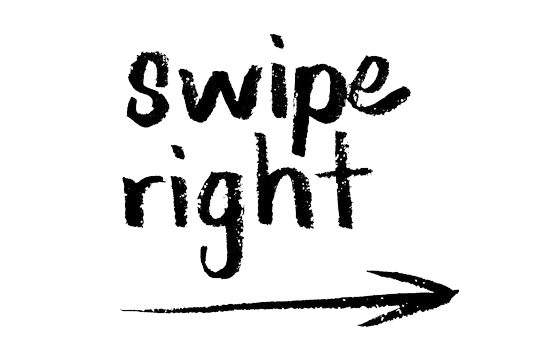 swipe
right